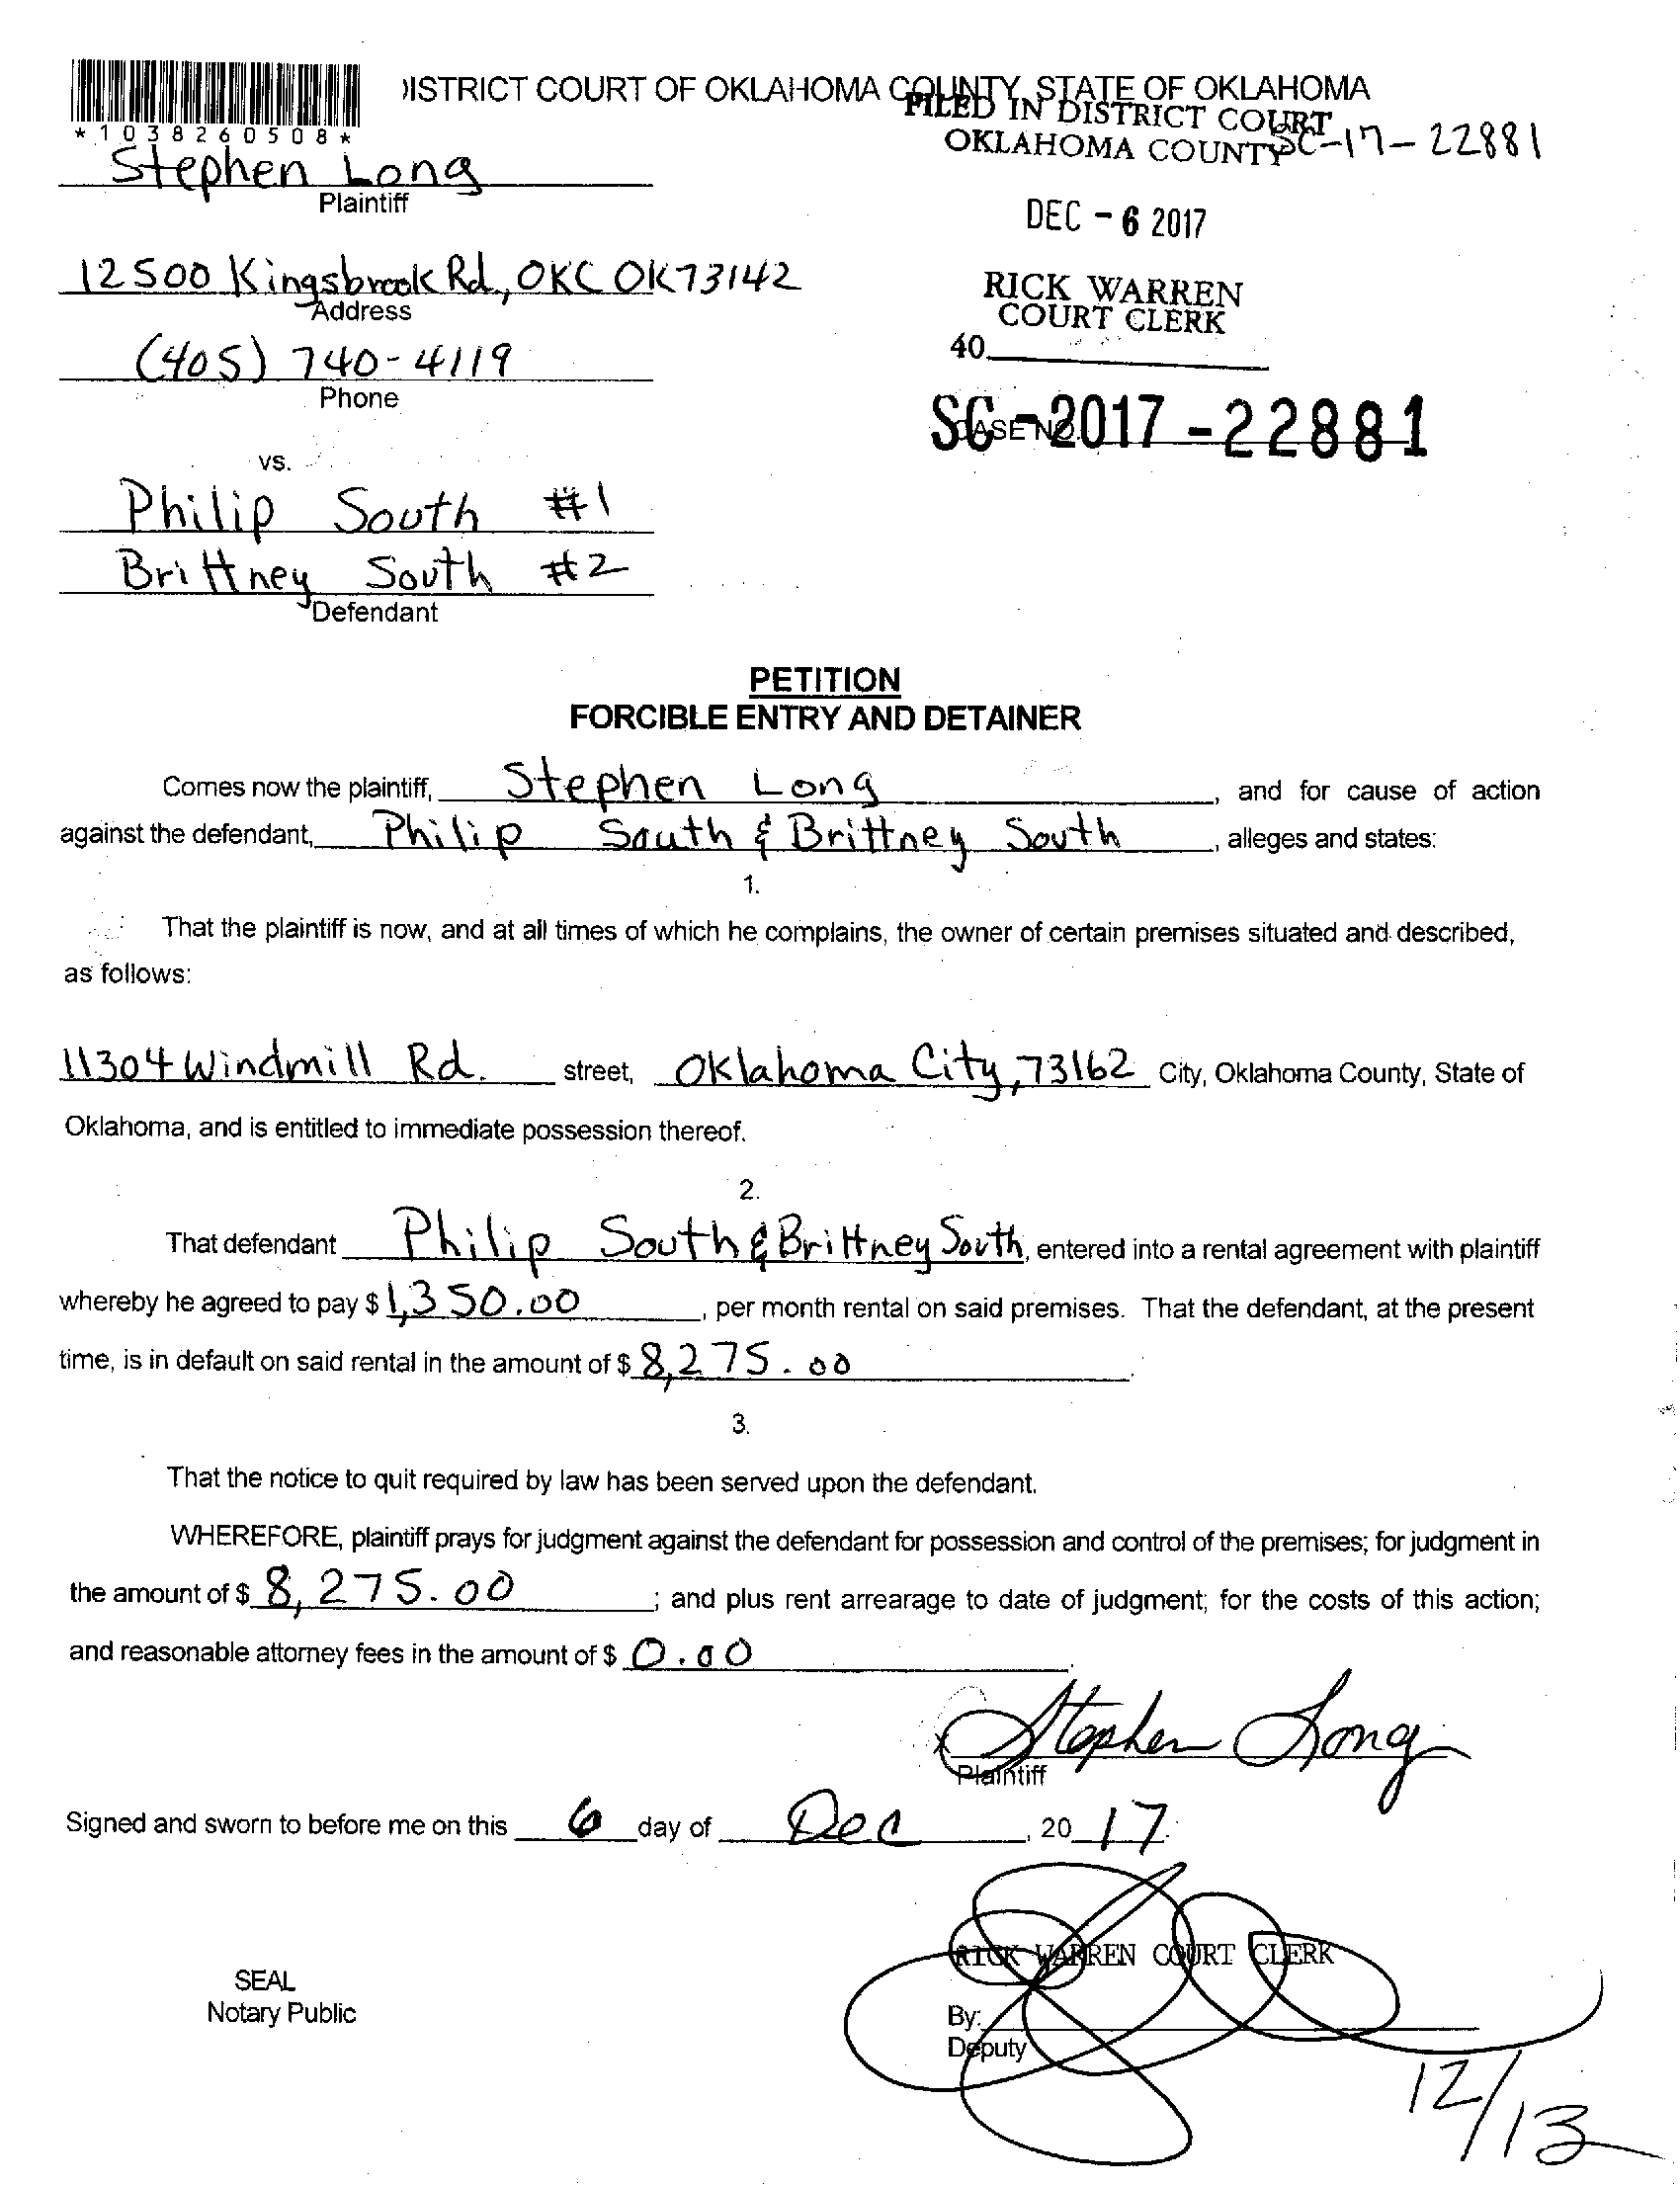 ISTRICT COURT OF OKLAHOMA COUNTY, STATE OF OKLAHOMA
FILED IN DISTRICT COURT
OKLAHOMA COUNTY
SC-17-22881
*1038260508*
Stephen Long
Plaintiff
DEC - 6 2017
12500 Kingsbrook Rd., OKC OK 73142
Address
RICK WARREN
COURT CLERK
40
(405) 740-4119
Phone
SC-2017-22881
CASE NO.
vs.
Philip South #1
Brittney South #2
Defendant
PETITION
FORCIBLE ENTRY AND DETAINER
Comes now the plaintiff, Stephen Long, and for cause of action
against the defendant, Philip South & Brittney South, alleges and states:
1.
That the plaintiff is now, and at all times of which he complains, the owner of certain premises situated and described,
as follows:
11304 Windmill Rd. street, Oklahoma City, 73162 City, Oklahoma County, State of
Oklahoma, and is entitled to immediate possession thereof.
2.
That defendant Philip South & Brittney South, entered into a rental agreement with plaintiff
whereby he agreed to pay $ 1,350.00, per month rental on said premises. That the defendant, at the present
time, is in default on said rental in the amount of $ 8,275.00.
3.
That the notice to quit required by law has been served upon the defendant.
WHEREFORE, plaintiff prays for judgment against the defendant for possession and control of the premises; for judgment in
the amount of $ 8,275.00; and plus rent arrearage to date of judgment; for the costs of this action;
and reasonable attorney fees in the amount of $ 0.00.
x Stephen Long
Plaintiff
Signed and sworn to before me on this 6 day of Dec, 20 17.
RICK WARREN COURT CLERK
SEAL
Notary Public
By:
Deputy
12/13